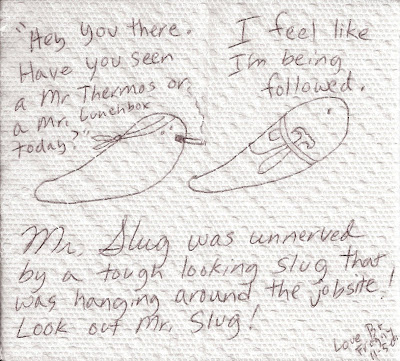 "Hey you there.
Have you seen
a Mr. Thermos or
a Mr. Lunchbox
today?"
I feel like
I'm being
followed.
Mr. Slug was unnerved
by a tough looking slug that
was hanging around the jobsite!
Look out Mr. Slug!
Love Bix
Frogny